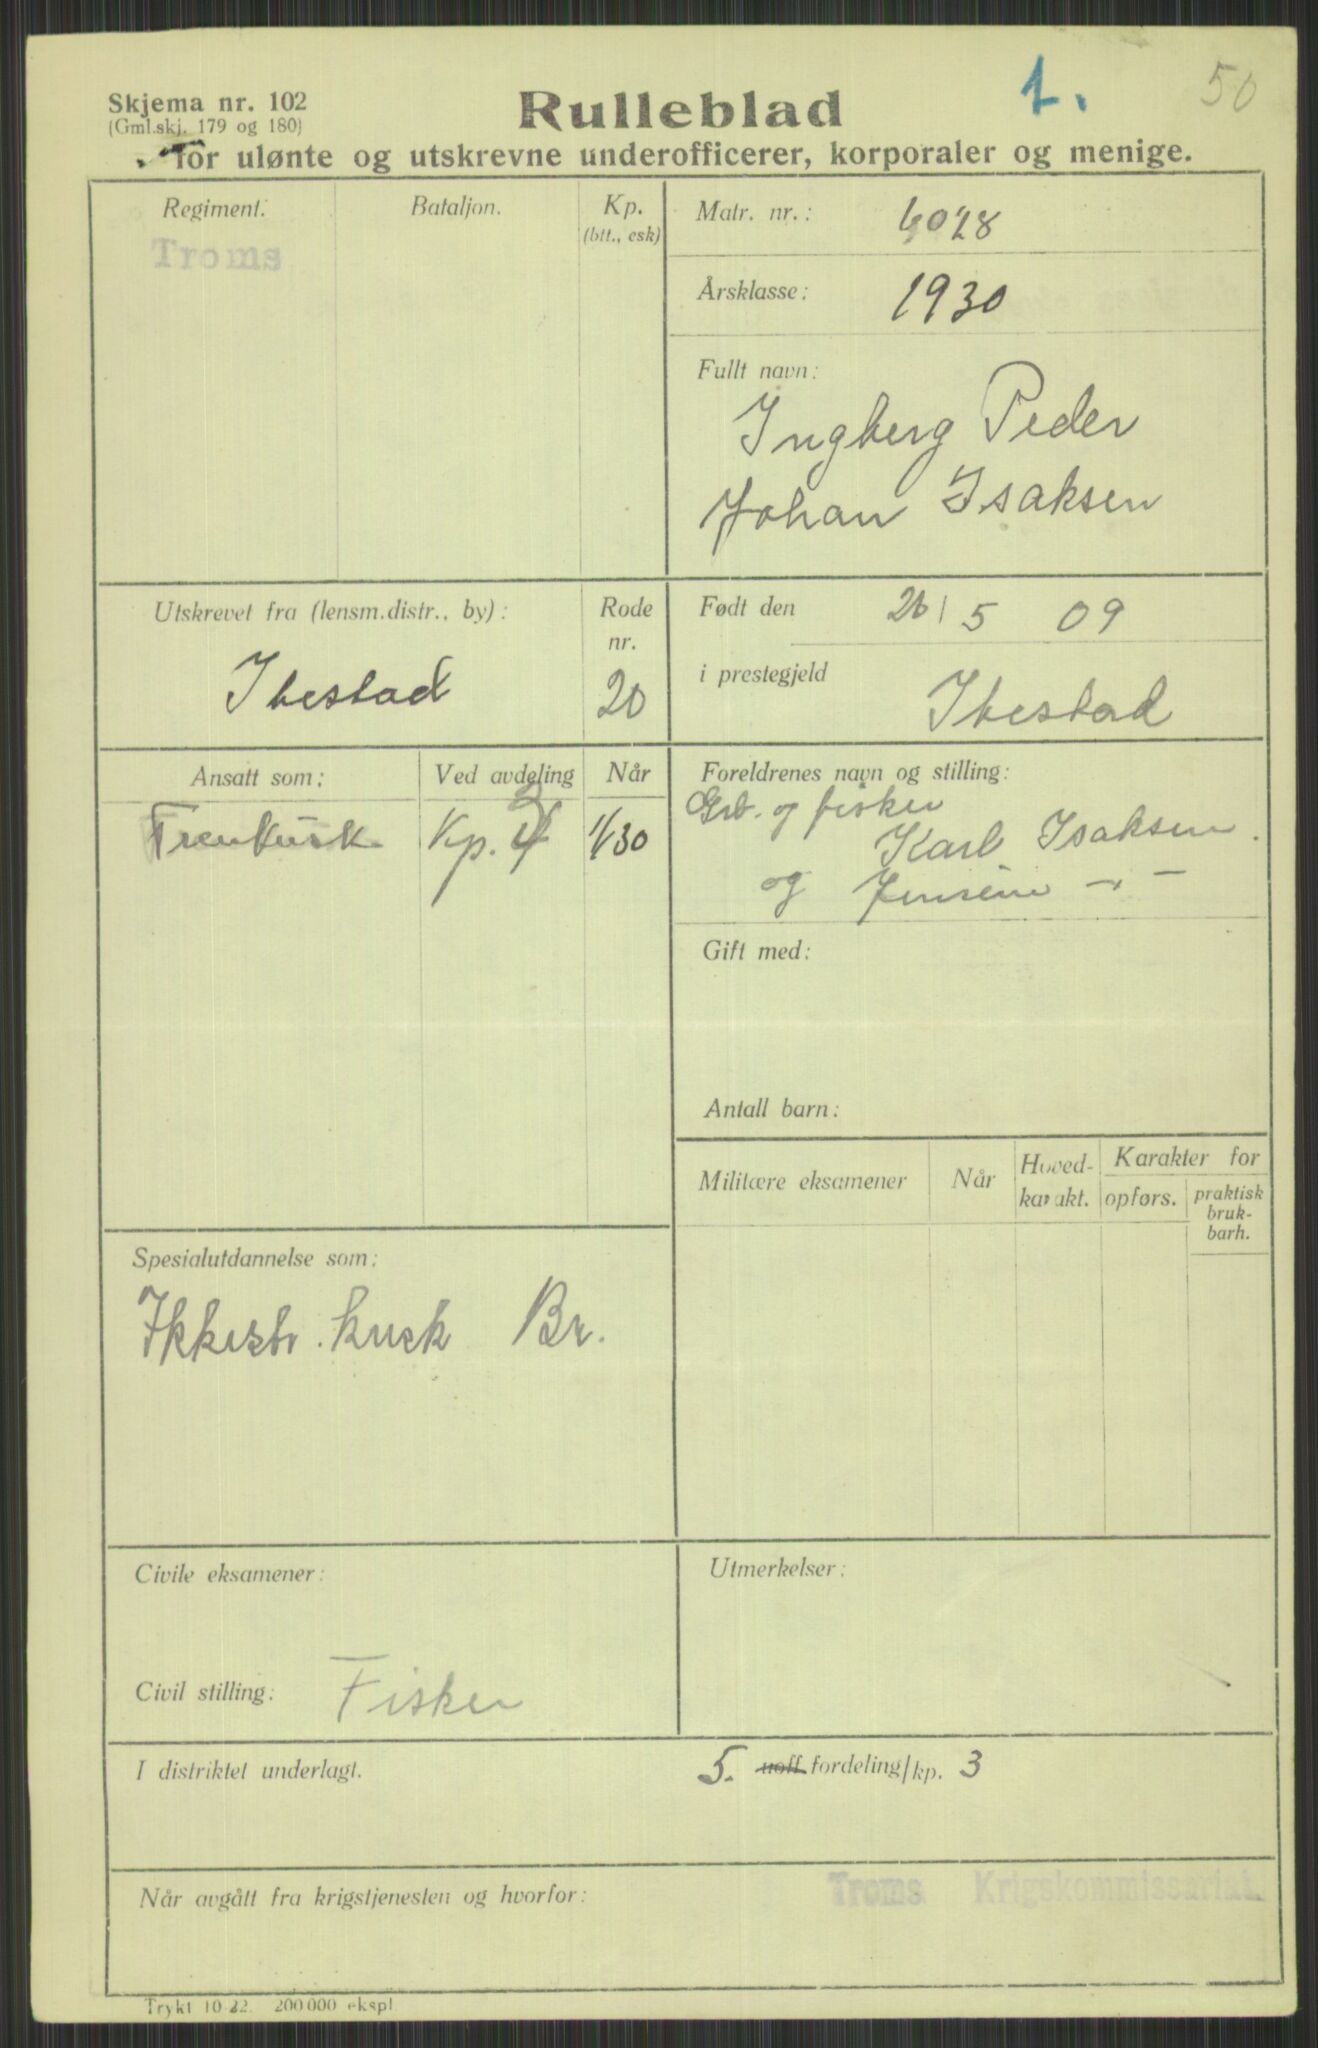 Skjema nr. 102
(Gml.skj. 179 og 180)
Rulleblad
1.
50
for ulønte og utskrevne underofficerer, korporaler og menige.
Regiment.
Bataljon.
Kp.
(btt., esk)
Troms
Matr. nr.:
Årsklasse: 1930
Fullt navn:
Ingberg Peder
Johan Isaksen
Utskrevet fra (lensm.distr., by):
Rode
nr.
Ibestad
20
Født den 26/5 09
i prestegjeld
Ibestad
Ansatt som:
Ved avdeling
Når
Trenkusk Kp. 1/30
Foreldrenes navn og stilling:
Grb. og fisker
Karl Isaksen
og Jensine
Gift med:
Antall barn:
Militære eksamener
Når
Hoved-
karakt.
Karakter for
opførs.
praktisk
bruk-
barh.
Spesialutdannelse som:
kusk Br.
Civile eksamener:
Civil stilling: Fisker
Utmerkelser:
I distriktet underlagt. 5. uoff fordeling/kp. 3
Når avgått fra krigstjenesten og hvorfor:
Troms Krigskommissariat.
Trykt 10-22. 200 000 ekspl